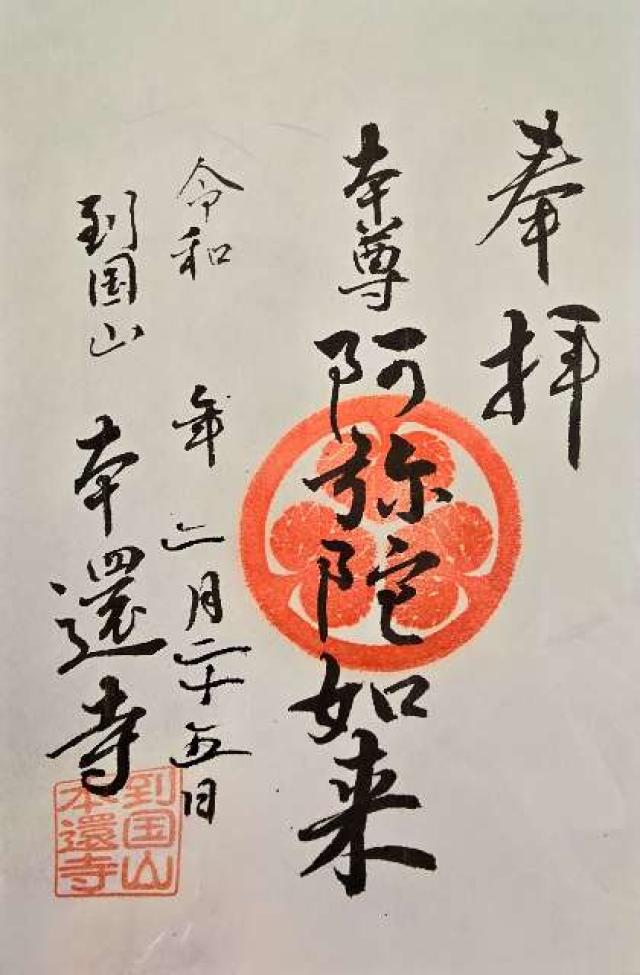 奉拝
本尊 阿弥陀如来
令和 年 二月二十五日
到国山 本還寺
到国山
本還寺